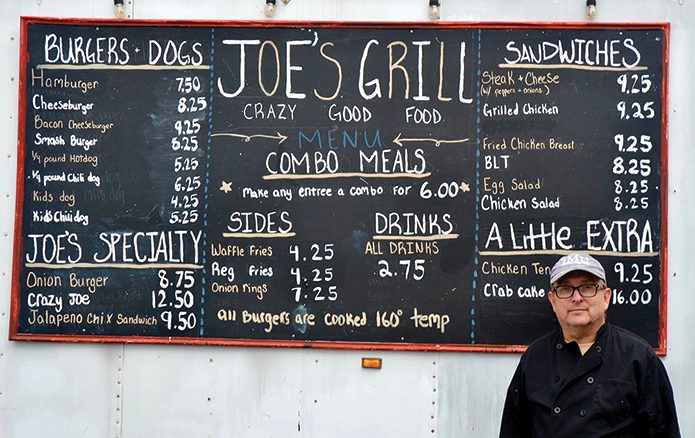 BURGERS + DOGS
Hamburger 7.50
Cheeseburger 8.25
Bacon Cheeseburger 9.25
Smash Burger 8.25
1/4 pound Hotdog 5.25
1/4 pound Chili dog 6.25
Kids dog 4.25
Kids Chili dog 5.25
JOE'S SPECIALTY
Onion Burger 8.75
Crazy Joe 12.50
Jalapeno Chix Sandwich 9.50
JOE'S GRILL
CRAZY GOOD FOOD
MENU
COMBO MEALS
make any entree a combo for 6.00
SIDES
Waffle Fries 4.25
Reg fries 4.25
Onion rings 7.25
DRINKS
ALL DRINKS
2.75
all Burgers are cooked 160° temp
SANDWICHES
Steak + Cheese 9.25
(w/ peppers + onions)
Grilled Chicken 9.25
Fried Chicken Breast 9.25
BLT 8.25
Egg Salad 8.25
Chicken Salad 8.25
A Little EXTRA
Chicken Ten 9.25
Crab cake 16.00